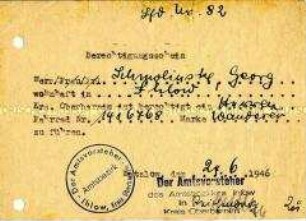 Lfd Nr. 82
Berechtigungsschein
Herr/Frau/Frl. Georg
wohnhaft in Ihlow
Krs. Oberbarnim ist berechtigt ein Herren
Fahrrad Nr. 1916768 Marke Wanderer
zu führen.
den 21.6 1946
Der Amtsvorsteher
des Amtsbezirks Ihlow
in
Kreis Oberbarnim
Der Amtsvorsteher
Amtsbezirk
Ihlow, Kreis